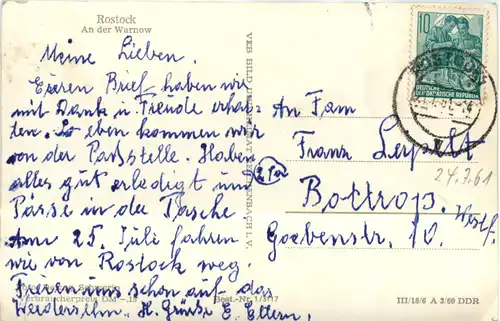 Rostock
An der Warnow
Meine Lieben.
Eueren Brief haben wir
mit Dank u Freude erhal-
ten. So eben kommen wir
von der Paßstelle. Haben
alles gut erledigt und
Pässe in der Tasche
Am 25. Juli fahren
wir von Rostock weg.
Freuen uns schon auf das
Wiedersehn. H. Grüße E. Eltern.
Verbraucherpreis DM -.15
Best.-Nr. 1/3117
VEB BILD
10
DEUTSCHE
DEMOKRATISCHE REPUBLIK
An Fam
Franz
Bottrop.
Westf.
Goebenstr. 10.
24.7.61
III/18/6 A 3/60 DDR